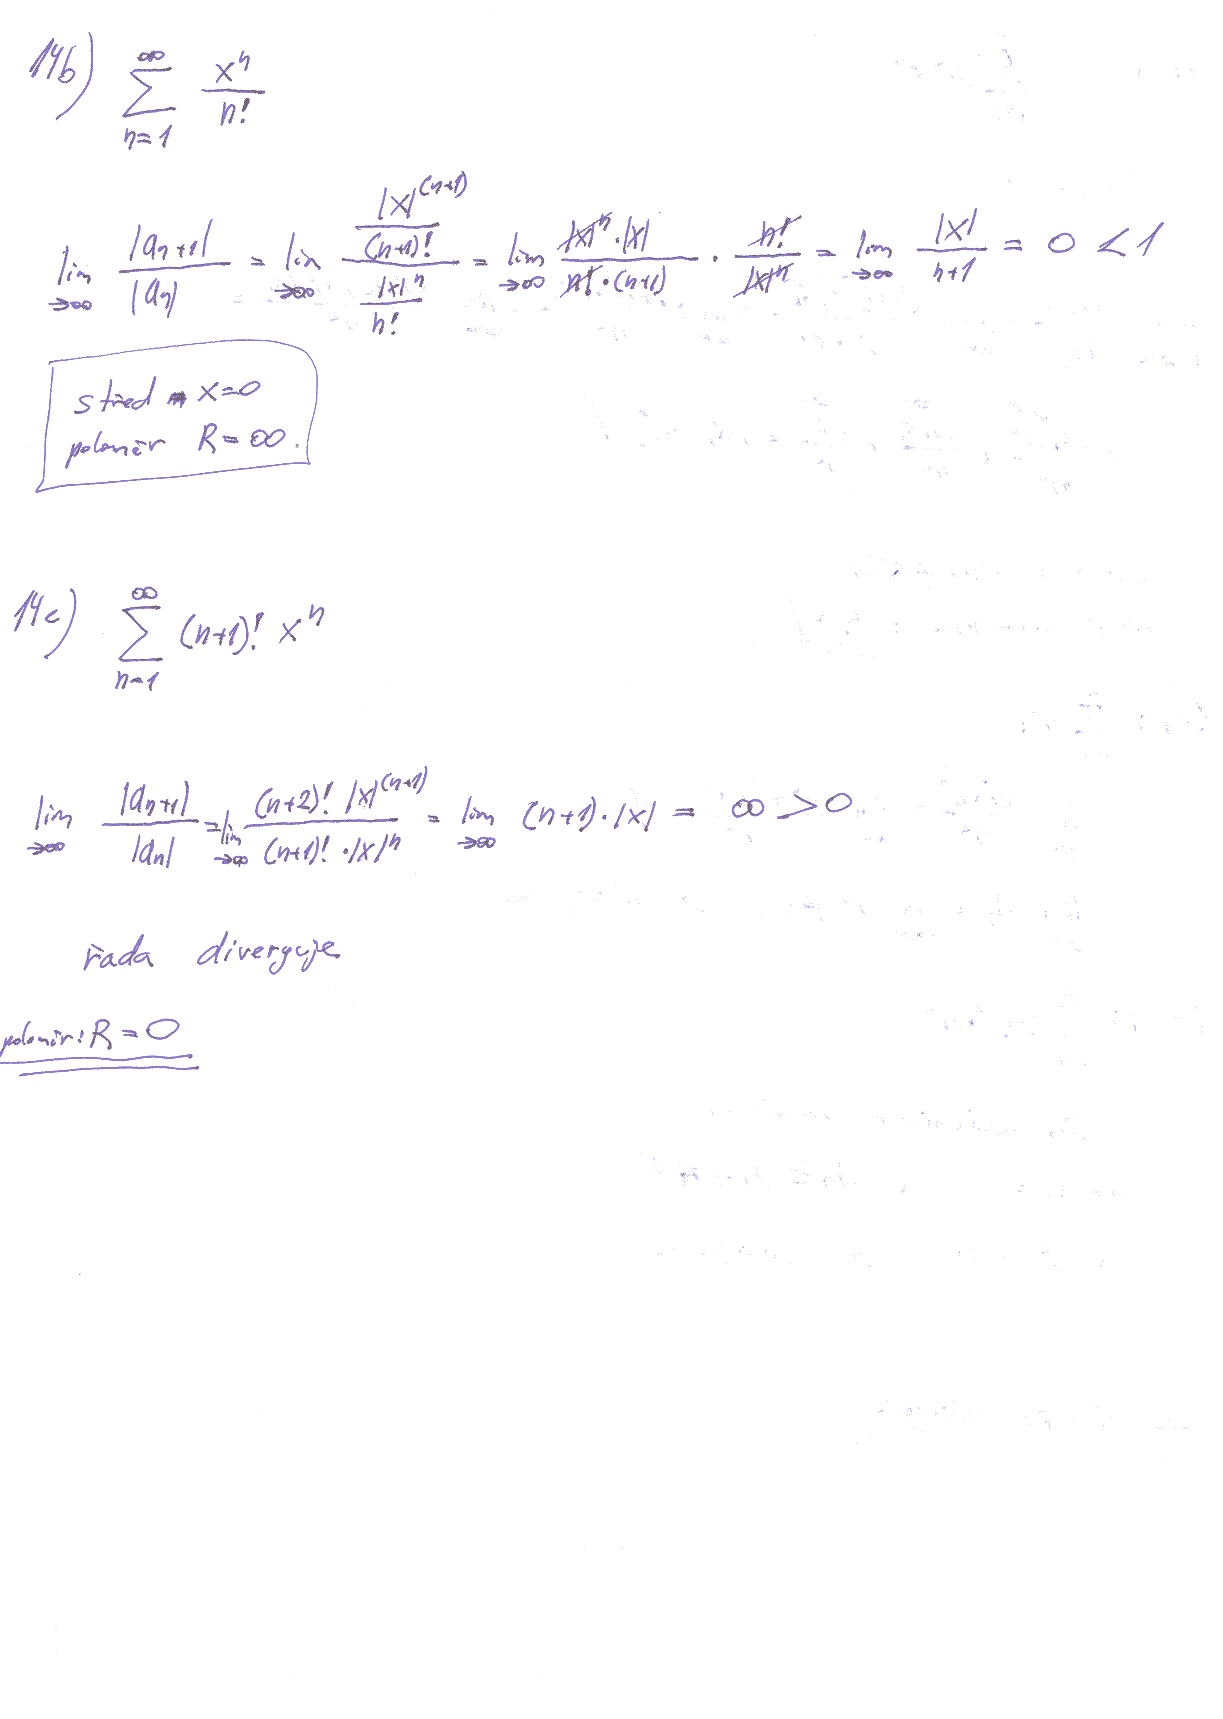 14b) \sum_{n=1}^{∞} \frac{x^n}{n!}
\lim_{→∞} \frac{|a_{n+1}|}{|a_n|} = \lim_{→∞} \frac{\frac{|x|^{(n+1)}}{(n+1)!}}{\frac{|x|^n}{n!}} = \lim_{→∞} \frac{|x|^n·|x|}{n!·(n+1)} · \frac{n!}{|x|^n} = \lim_{→∞} \frac{|x|}{n+1} = 0 < 1
střed x=0
poloměr R=∞.
14c) \sum_{n=1}^{∞} (n+1)! x^n
\lim_{→∞} \frac{|a_{n+1}|}{|a_n|} = \lim_{→∞} \frac{(n+2)! |x|^{(n+1)}}{(n+1)!·|x|^n} = \lim_{→∞} (n+1)·|x| = ∞ > 0
řada diverguje
poloměr: R=0